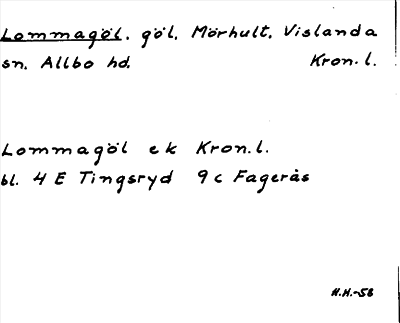 Lommagöl. göl. Mörhult. Vislanda
sn. Allbo hd. Kron.l.
Lommagöl ek Kron.l.
bl. 4 E Tingsryd 9 c Fagerås
H.H.-58